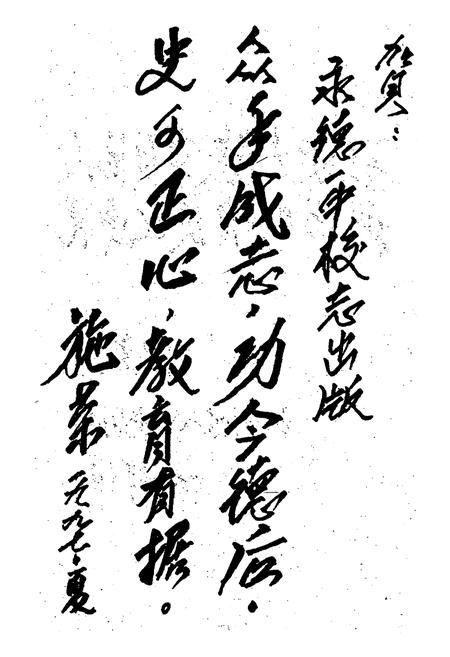 贺：
永德一中校志出版
众手成志，功今德后，
史可正心，教育有据。
施荣 一九九七·夏